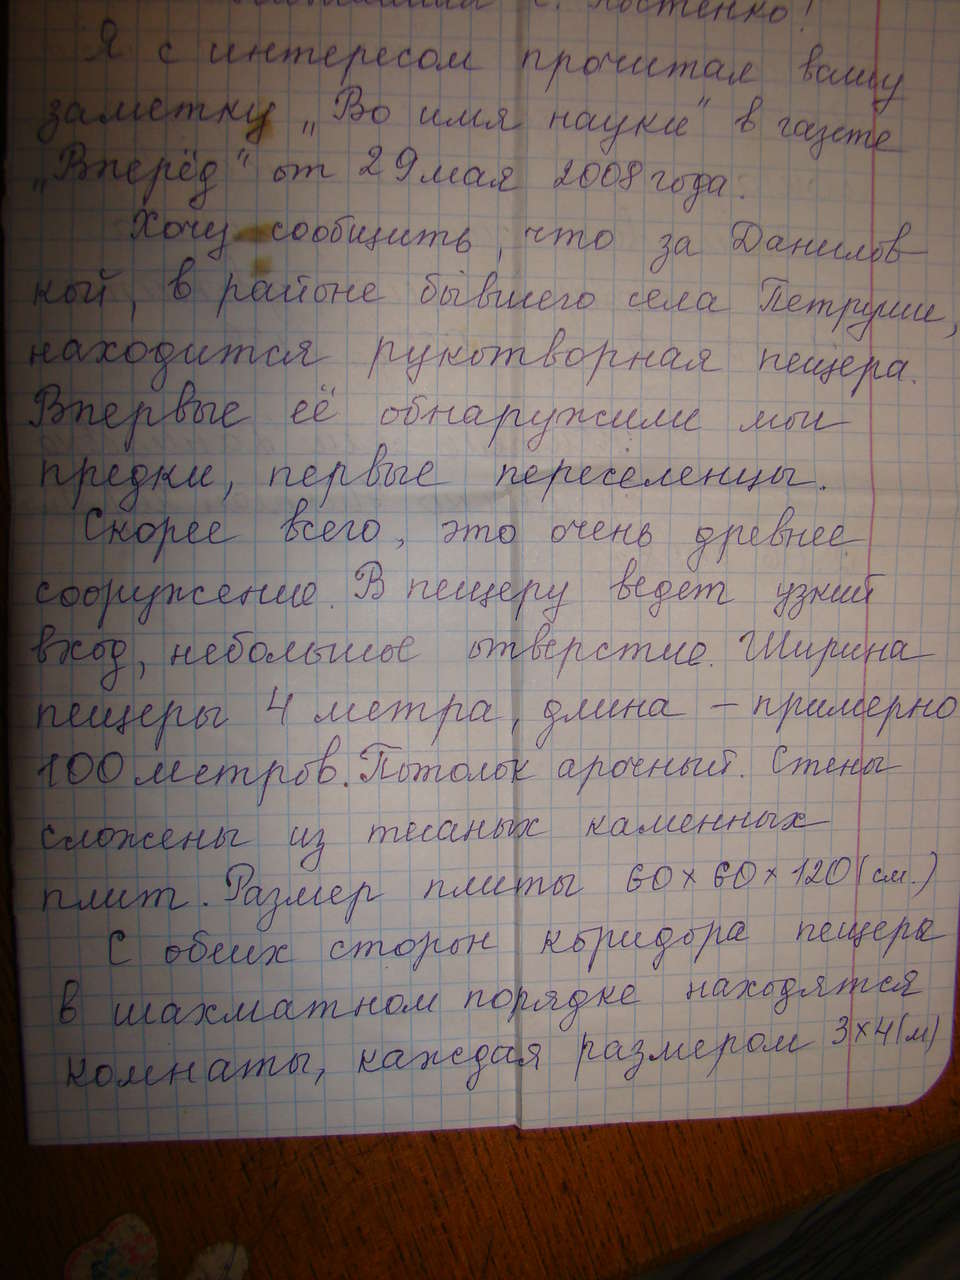 С. Костенко!
Я с интересом прочитал вашу
заметку „Во имя науки" в газете
„Вперёд" от 29 мая 2008 года.
Хочу сообщить, что за Данилов-
кой, в районе бывшего села Петруши,
находится рукотворная пещера.
Впервые её обнаружили мои
предки, первые переселенцы.
Скорее всего, это очень древнее
сооружение. В пещеру ведет узкий
вход, небольшое отверстие. Ширина
пещеры 4 метра, длина – примерно
100 метров. Потолок арочный. Стены
сложены из тесаных каменных
плит. Размер плиты 60 x 60 x 120 (см.)
С обеих сторон коридора пещеры
в шахматном порядке находятся
комнаты, каждая размером 3x4(м)